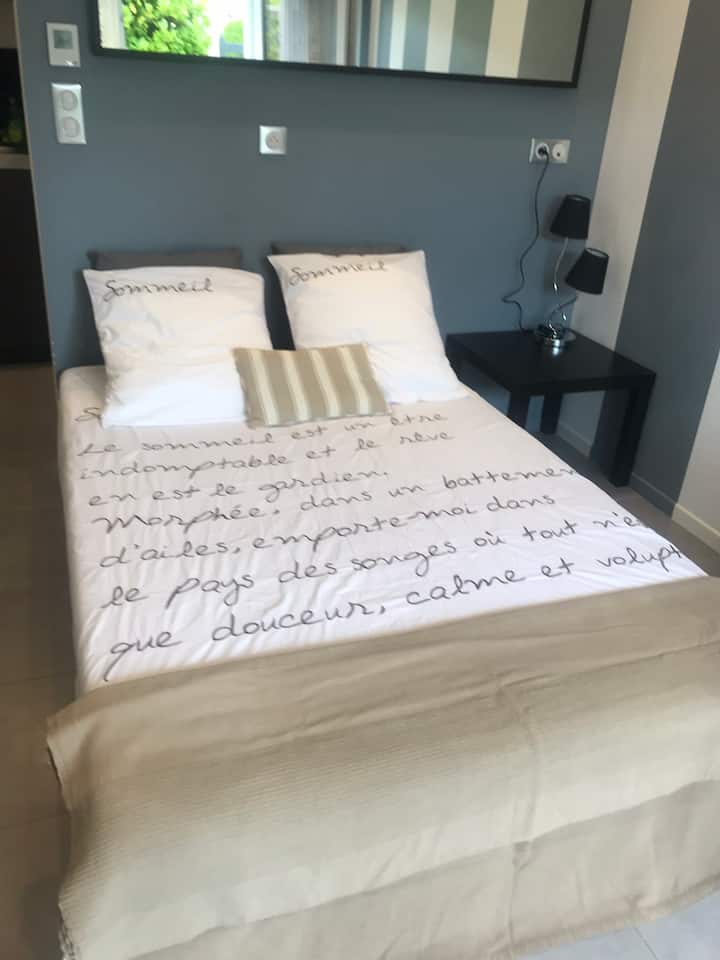 Sommeil
Sommeil
Le sommeil est un être
indomptable et le rêve
en est le gardien.
Morphée, dans un battemen
d'ailes, emporte-moi dans
le pays des songes où tout n'e
que douceur, calme et volupt